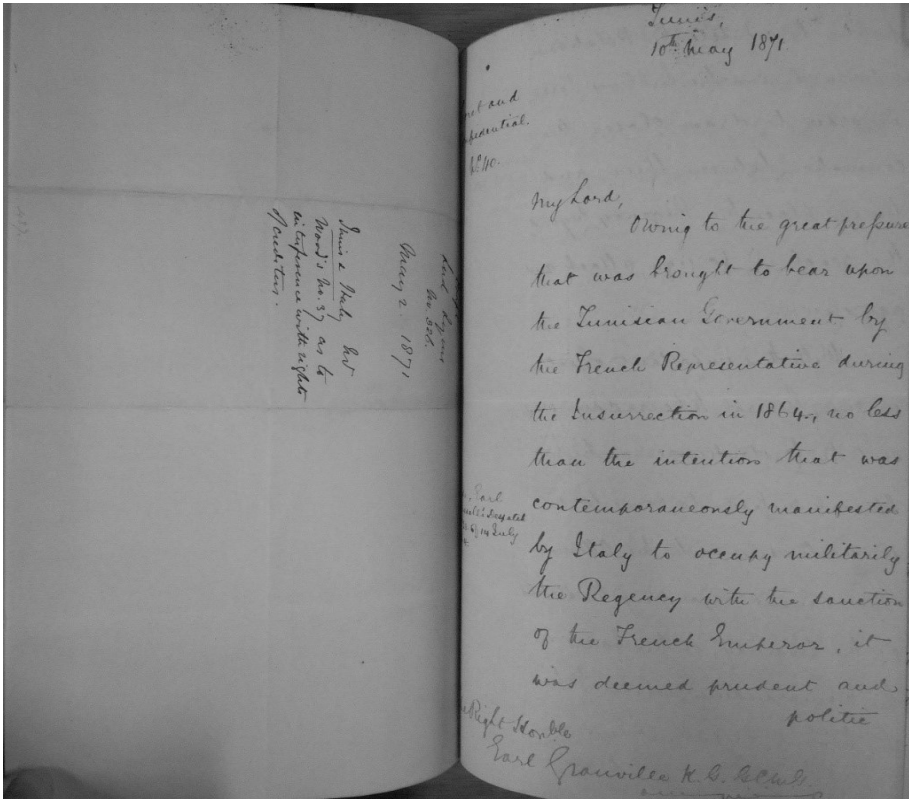 Lord Lyons
No. 326.
May 2. 1871
Tunis & Italy
Wood's No. 37 as to
interference with rights
of creditors.
Tunis,
10th May 1871.
and
No 40.
My Lord,
Owing to the great pressure
that was brought to bear upon
the Tunisian Government by
the French Representative during
the Insurrection in 1864, no less
than the intention that was
contemporaneously manifested
by Italy to occupy militarily
the Regency with the sanction
of the French Emperor, it
was deemed prudent and
politic
Earl
Despatch
of 14 July
Right Honble
Earl Granville K.G.